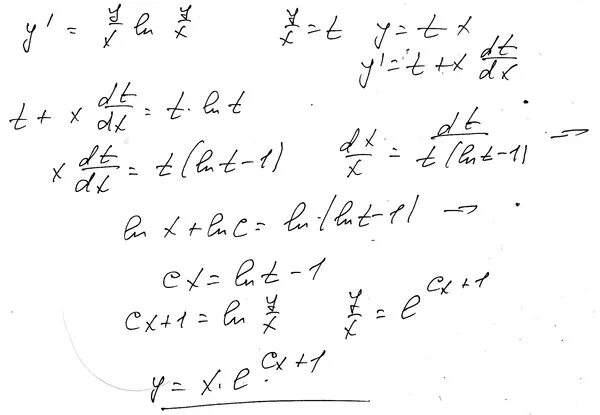 y' = y/x ln y/x    y/x = t    y = t x
y' = t + x dt/dx
t + x dt/dx = t · ln t
x dt/dx = t (ln t - 1)    dx/x = dt / t (ln t - 1) →
ln x + ln c = ln · (ln t - 1) →
cx = ln t - 1
cx + 1 = ln y/x    y/x = e^(cx + 1)
y = x · e^(cx + 1)